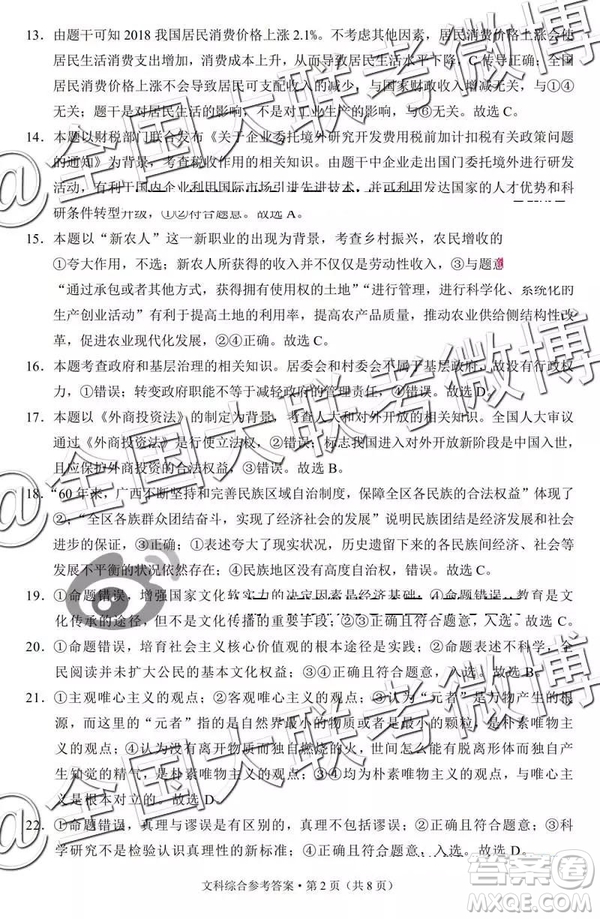 13. 由题干可知 2018 我国居民消费价格上涨 2.1%。不考虑其他因素，居民消费价格上涨会使
居民生活消费支出增加，消费成本上升，从而会导致居民生活水平下降，C 传导正确；全国
居民消费价格上涨不会导致居民可支配收入的减少，与国家财政收入无直接联系，与①④
无关；题干是对居民生活的影响，不是对工业生产的影响，与⑥无关。故选 C。
14. 本题以财税部门联合发布《关于企业委托境外研究开发费用税前加计扣税有关政策问题
的通知》为背景，考查税收作用的相关知识。由题干中企业走出国门委托境外进行研发
活动，有利于国内企业利用国际市场引进先进技术，并可利用发达国家的人才优势和科
研条件转型升级，①②符合题意。故选 A。
15. 本题以“新农人”这一新职业的出现为背景，考查乡村振兴，农民增收的
①夸大作用，不选；新农人所获得的收入并不仅仅是劳动性收入，③与题意
“通过承包或者其他方式获得使用权的土地”“进行管理，进行科学化、系统化的
生产创业活动”有利于提高土地的利用率，提高农产品质量，推动农业供给侧结构性改
革，促进农业现代化发展，②④正确。故选 C。
16. 本题考查政府和基层治理的相关知识。居委会和村委会不属于基层政府，因此不拥有行
政权力，①错误；转变政府职能不等于减轻政府的管理责任，④错误。故选 C。
17. 本题以《外商投资法》的制定为背景，考查人大和对外开放的相关知识。全国人大审议
通过《外商投资法》是行使立法权，②错误；标志我国进入对外开放新阶段是中国入世，
且应保护外商投资的合法权益，③错误。故选 B。
18. “60 年来，广西不断坚持和完善民族区域自治制度，保障全区各民族的合法权益”体现了
②，“全区各族群众团结奋斗，实现了经济社会的发展”说明民族团结是经济和社会
进步的保证，③正确；①表述夸大了现实状况，历史遗留下来的民族间经济、社会等
发展不平衡的状况依然存在；④民族地区没有高度自治权，错误。故选 C。
19. ①命题错误，增强国家文化软实力的决定因素是经济基础；④命题错误，教育是文
化传承的途径，但不是大众传播的重要手段；②③正确且符合题意，入选。故选 C。
20. ①命题错误，培育社会主义核心价值观的根本途径是实践；②命题表述不科学，全
民阅读并未扩大公民的基本文化权益；③④正确且符合题意，入选。故选 D。
21. ①主观唯心主义的观点；②客观唯心主义的观点；③认为“元者”是万物产生的根
源，而这里的“元者”常指最小的不变的物质或者是最小的颗粒，是朴素唯物主义
的观点；④认为没有可以离开物质而独自燃燒的火，世间也没有能脱离形体而单独
存在和发生知觉的精气，是朴素唯物主义的观点。③④均为朴素唯物主义的观点，与唯心主义
是根本对立的。故选 D。
22. ①命题错误，真理与谬误是有区别的，真理不包括谬误；②正确且符合题意；③科
学研究不是检验认识真理性的标准，命题错误；④正确且符合题意，入选。故选 D。
文科综合参考答案·第 2 页（共 8 页）
@全国大联考微博
@全国大联考微博
@全国大联考微博